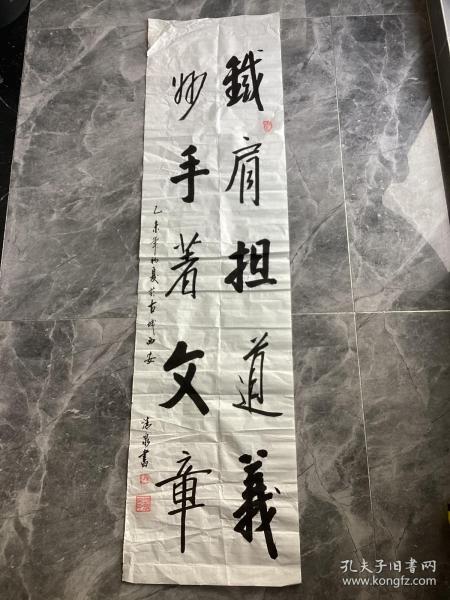 鐵肩担道義
妙手著文章
乙未年初夏於古城西安
書
孔夫子旧书网
www.kongfz.com